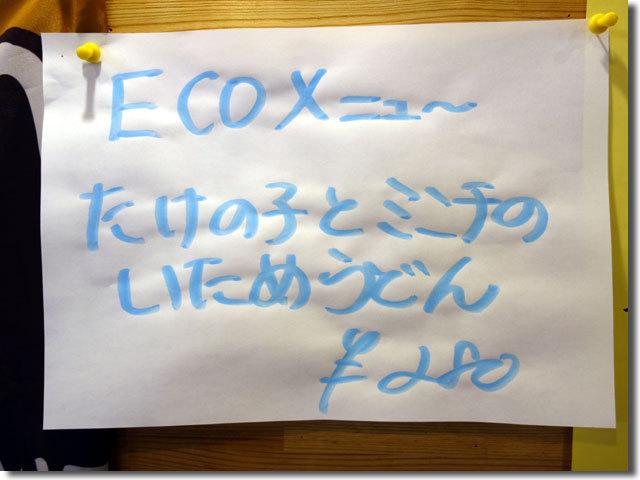 ECOメニュ〜
たけの子とミンチの
いためうどん
¥280